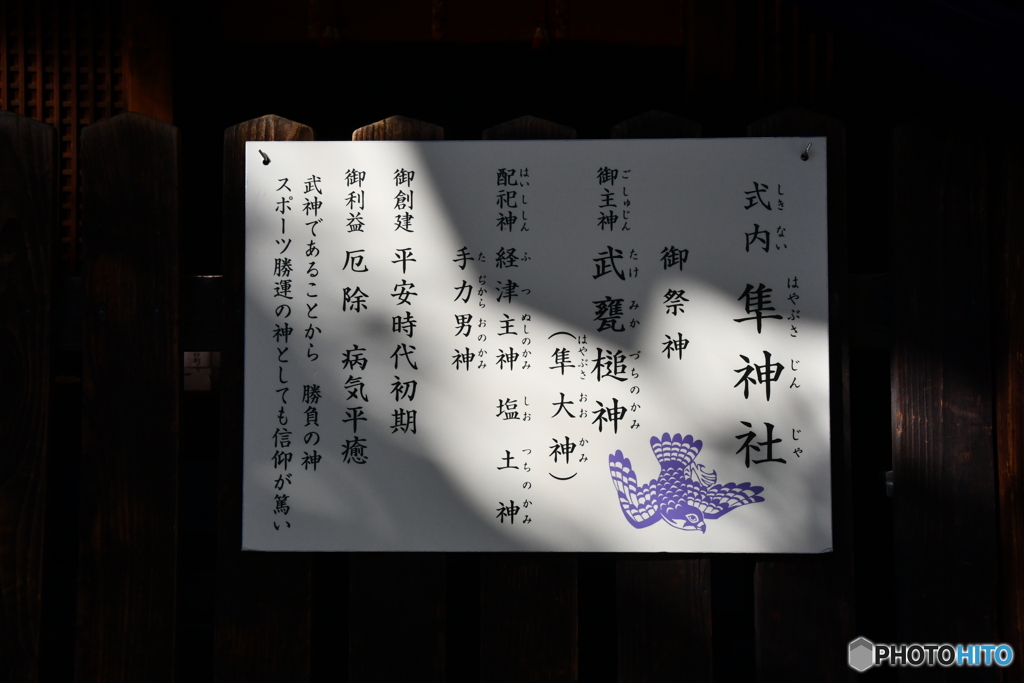 式内 隼神社
しきない はやぶさ じんじゃ
御祭神
御主神 武甕槌神
ごしゅじん たけ みか づちのかみ
（隼大神）
はやぶさ おお かみ
配祀神 経津主神 塩土神
はいししん ふつぬしのかみ しお つちのかみ
手力男神
たぢからおのかみ
御創建 平安時代初期
御利益 厄除 病気平癒
武神であることから 勝負の神
スポーツ勝運の神としても信仰が篤い
PHOTOHITO